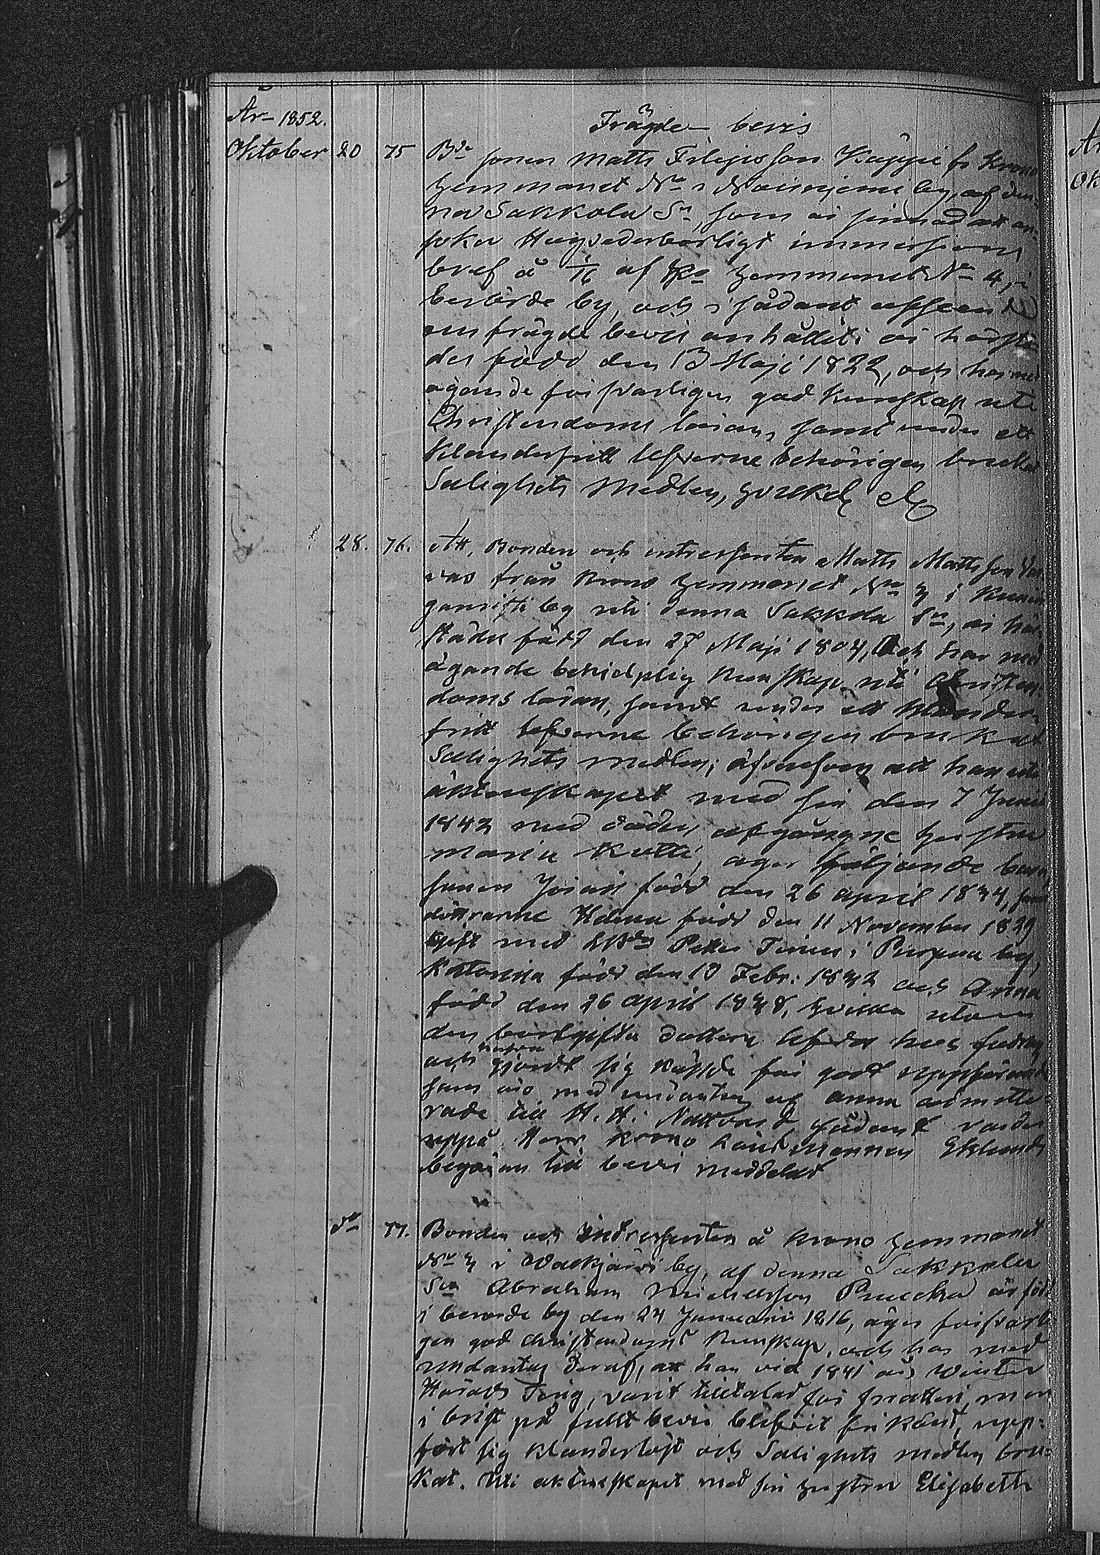 År 1852.
Frägde bevis
Oktober 20 75 Bde sonen Matts Filipsson Käppi fr Krono
Hemmanet No 1 by, af den
na Sakkola Sn, som är sinnad att an
söka Höga vederbörligt immissions
bref å 1/6 af Kro Hemmanet No 4, i
berörde by, och i sådant afseende
om frägde bevis anhållit; är härstä
des född den 13 Maji 1822, och har med
ägande försvarligen god kunskap uti
Christendoms läran, samt under ett
klanderfritt lefverne behörigen brukat
Salighets Medlen, hvilket etc
28. 76. Att, Bonden och intressenten Matts Mattsson
från Krono Hemmanet No 3 i
by uti denna Sakkola Sn, är här
städes född den 27 Maji 1804, och har med
ägande behjelplig kunskap uti Christen:
doms läran, samt under ett klander:
fritt lefverne behörigen brukat
Salighets medlen; äfvensom att han uti
äktenskapet med sin den 7 Junii
1842 med döden afgångne hustru
Maria Kotti, äger följande barn
sonen Jonas född den 26 april 1834, samt
döttrarne Helena född den 11 November 1829
gift med Peter i by,
Katarina född den 10 Febr: 1832 och Anna
född den 26 april 1838, hvilka utom
den bortgifta dottern lefva hos fadren
och hafva gjordt sig kände för godt uppförande
samt äro med undantag af Anna admitte
rade till H. H. Nattvard sådant varder
uppå Herr Krono Länsmannen Eklunds
begäran till bevis meddelat
do 77. Bonden och Intressenten å Krono Hemmanet
No 3 i by, af denna Sakkola
Sn Abraham Michelsson Pruuka är född
i berörde by den 24 Januarii 1816, äger försvarli
gen god christendoms kunskap, och har med
undantag deraf, att han vid 1841 års Winter
Härads Ting, varit tilltalad för snatteri, men
i brist på fullt bevis blifvit frikänd, upp:
fört sig klanderlöst och Salighets medlen bru:
kat. Uti aktenskapet med sin hustru Elisabeth